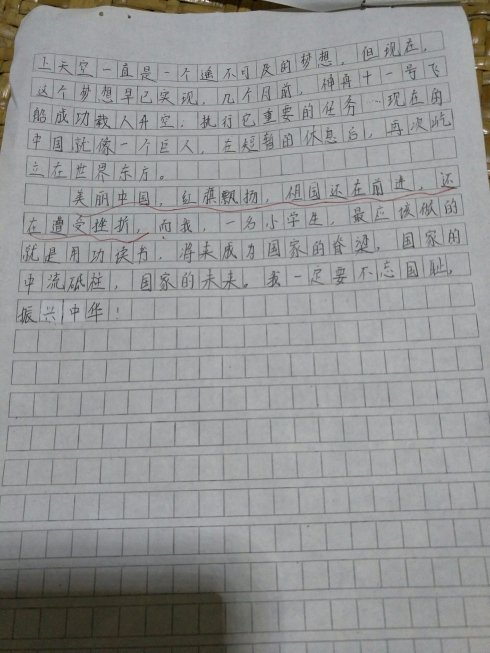 上天空一直是一个遥不可及的梦想，但现在，
这个梦想早已实现，几个月前，神舟十一号飞
船成功载人升空，执行它重要的任务…现在的
中国就像一个巨人，在短暂的休息后，再次屹
立在世界东方。
美丽中国，红旗飘扬，但国还在前进，还
在遭受挫折，而我，一名小学生，最应该做的
就是用功读书，将来成为国家的脊梁，国家的
中流砥柱，国家的未来。我一定要不忘国耻，
振兴中华！